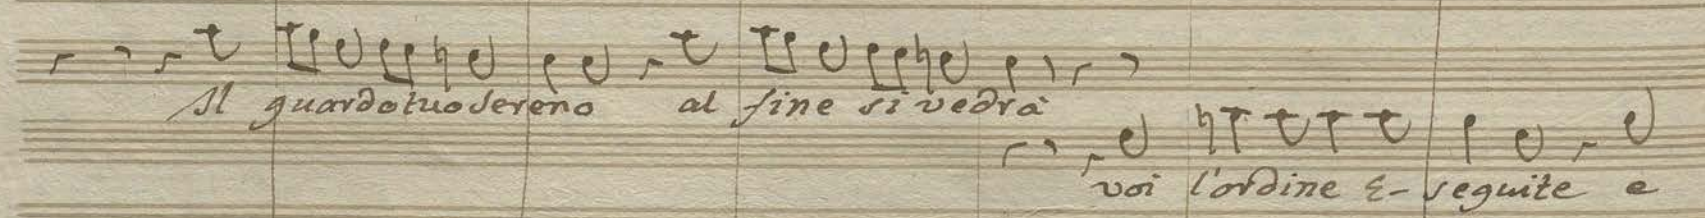 Il guardo tuo sereno al fine si vedrà
voi l'ordine E-seguite e